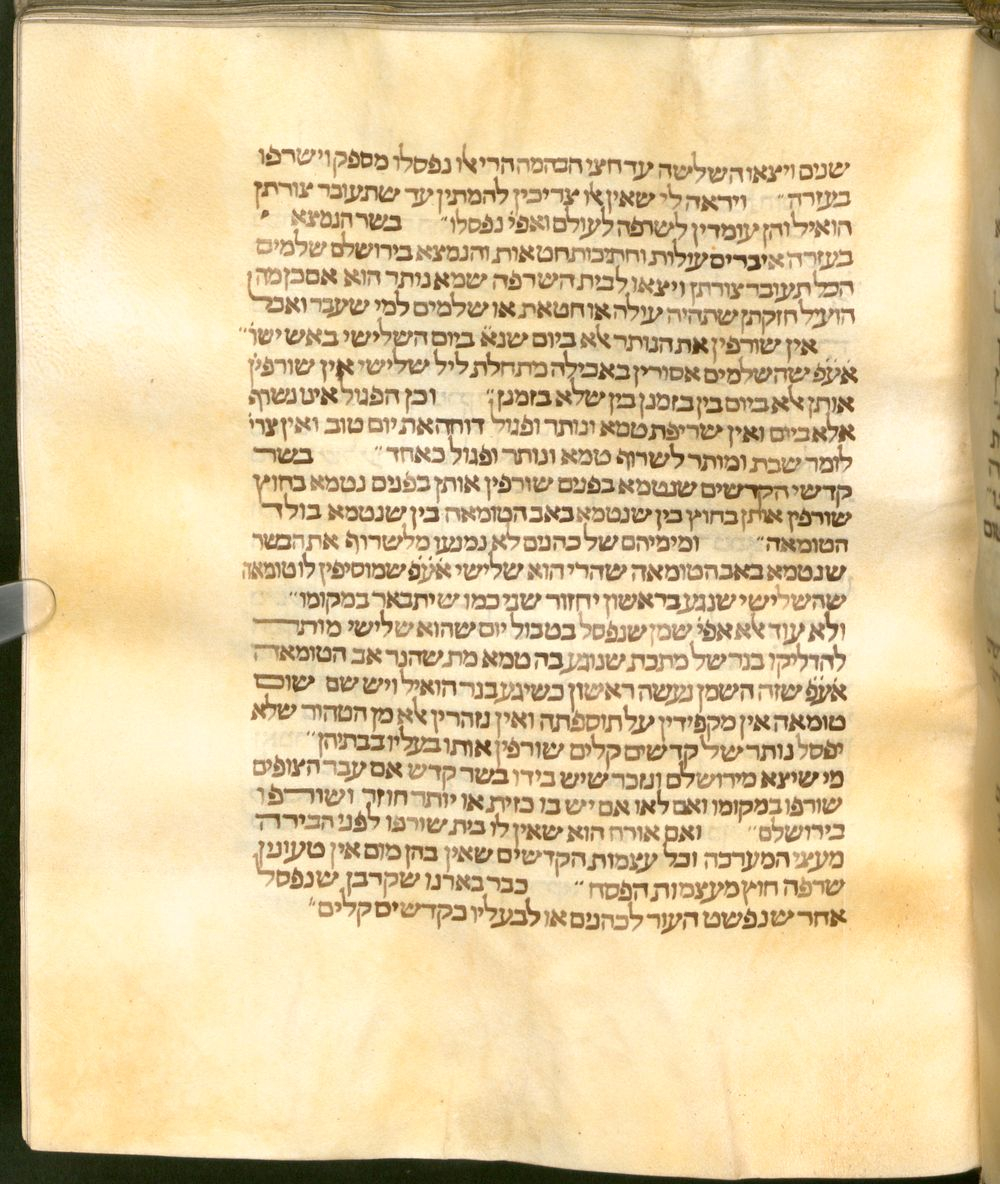 שנים ויצאו השלישה עד חצי הבהמה הרי אלו נפסלו מספק וישרפו
בעזרה״ ויראה לי שאין אלו צריכין להמתין עד שתעובר צורתן
הואיל והן עומדין לשרפה לעולם ואפי׳ נפסלו״ בשר הנמצא
בעזרה איברים עולות וחתיכות חטאות והנמצא בירושלם שלמים
הכל תעובר צורתן ויצאו לבית השרפה שמא נותר הוא אם כן מה
הועיל חזקתן שתהיה עולה או חטאת או שלמים למי שעבר ואכל
אין שורפין את הנותר אלא ביום שנא׳ ביום השלישי באש ישר״
אע״פ שהשלמים אסורין באכילה מתחלת ליל שלישי אין שורפין
אותן אלא ביום בין בזמנן בין שלא בזמנן״ וכן הפגול אינו נשרף
אלא ביום ואין שריפת טמא ונותר ופגול דוחה את יום טוב ואין צרי׳
לומר שבת ומותר לשרוף טמא ונותר ופגול כאחד״ בשר
קדשי הקדשים שנטמא בפנים שורפין אותן בפנים נטמא בחוץ
שורפין אותן בחוץ בין שנטמא באב הטומאה בין שנטמא בולד
הטומאה״ ומימיהם של כהנים לא נמנעו מלשרוף את הבשר
שנטמא באב הטומאה שהרי הוא שלישי אע״פ שמוסיפין לו טומאה
שהשלישי שנגע בראשון יחזור שני כמו שיתבאר במקומו״
ולא עוד אלא אפי׳ שמן שנפסל בטבול יום שהוא שלישי מותר
להדליקו בנר של מתכת שנוגע בה טמא מת שהנר אב הטומאה
אע״פ שזה השמן נעשה ראשון כשיגע בנר הואיל ויש שם שום
טומאה אין מקפידין על תוספתה ואין נזהרין אלא מן הטהור שלא
יפסל נותר של קדשים קלים שורפין אותו בעליו בבתיהן״
מי שיצא מירושלם ונזכר שיש בידו בשר קדש אם עבר הצופים
שורפו במקומו ואם לאו אם יש בו כזית או יותר חוזר ושורפו
בירושלם״ ואם אורח הוא שאין לו בית שורפו לפני הבירה
מעצי המערכה וכל עצמות הקדשים שאין בהן מום אין טעונין
שרפה חוץ מעצמות הפסח״ כבר בארנו שקרבן שנפסל
אחר שנפשט העור לכהנים או לבעליו בקדשים קלים״